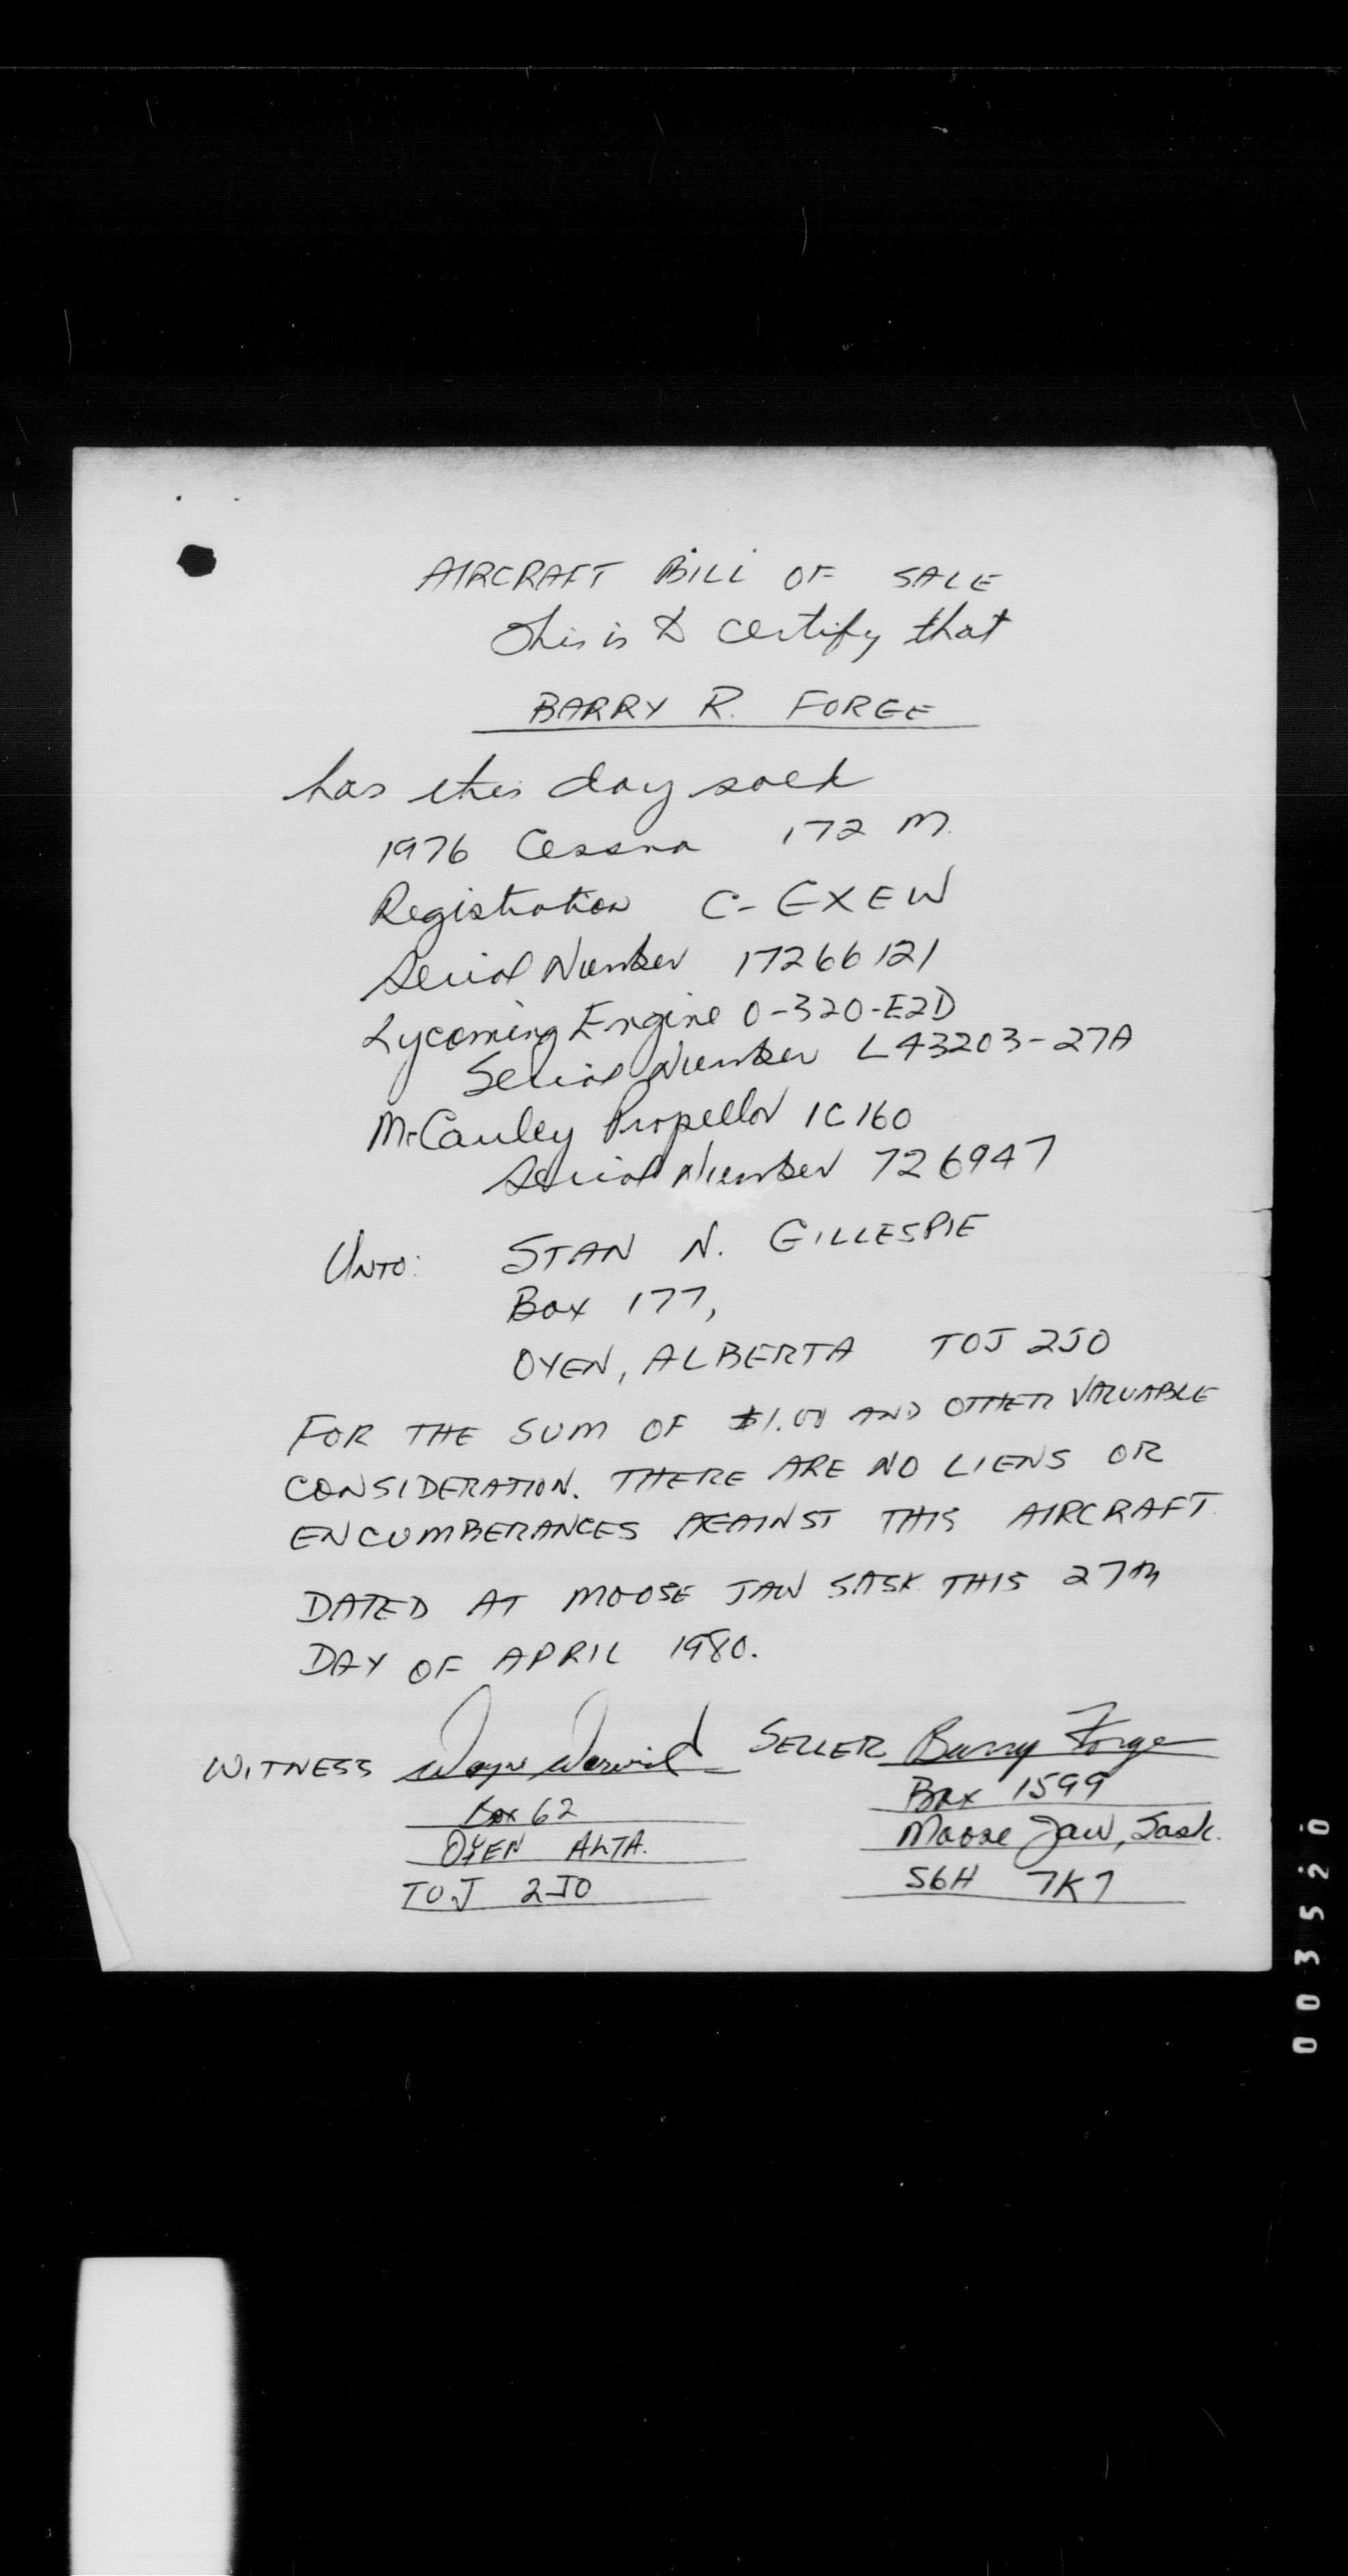 AIRCRAFT BILL OF SALE
This is to certify that
BARRY R. FORGE
has this day sold
1976 Cessna 172 M.
Registration C-GXEW
Serial Number 17266121
Lycoming Engine O-320-E2D
Serial Number L43203-27A
McCauley Propellor 1C160
Serial Number 726947
UNTO: STAN N. GILLESPIE
Box 177,
OYEN, ALBERTA T0J 2J0
FOR THE SUM OF $1.00 AND OTHER VALUABLE
CONSIDERATION. THERE ARE NO LIENS OR
ENCUMBERANCES AGAINST THIS AIRCRAFT.
DATED AT MOOSE JAW SASK. THIS 27TH
DAY OF APRIL 1980.
WITNESS Wayne Warwick SELLER Barry Forge
Box 62 Box 1599
OYEN ALTA. Moose Jaw, Sask.
T0J 2J0 S6H 7K7
003520